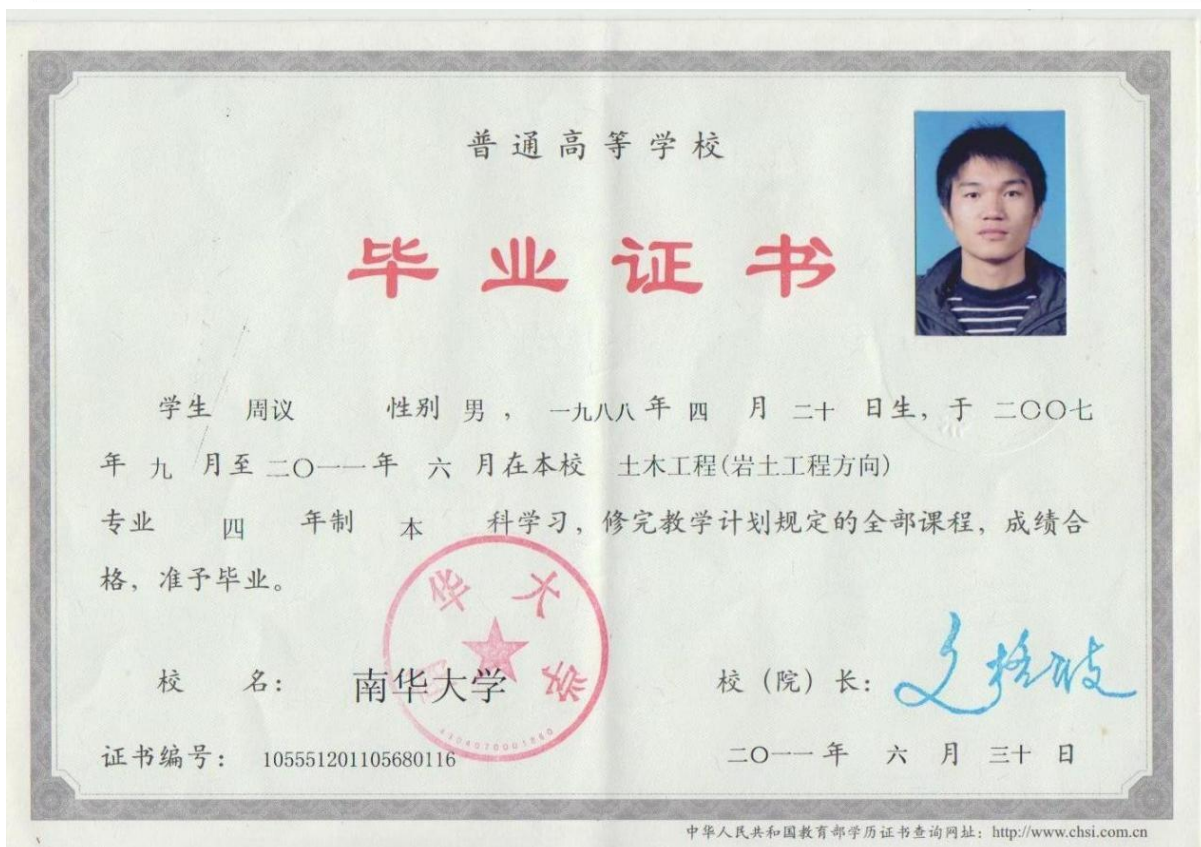 普通高等学校
毕业证书
学生 周议 性别 男，一九八八年 四 月 二十 日生，于 二〇〇七
年 九 月至 二〇一一年 六 月在本校 土木工程(岩土工程方向)
专业 四 年制 本 科学习，修完教学计划规定的全部课程，成绩合
格，准予毕业。
南华大学
校 名： 南华大学 校（院）长：
证书编号： 105551201105680116 二〇一一年 六 月 三十 日
中华人民共和国教育部学历证书查询网址：http://www.chsi.com.cn